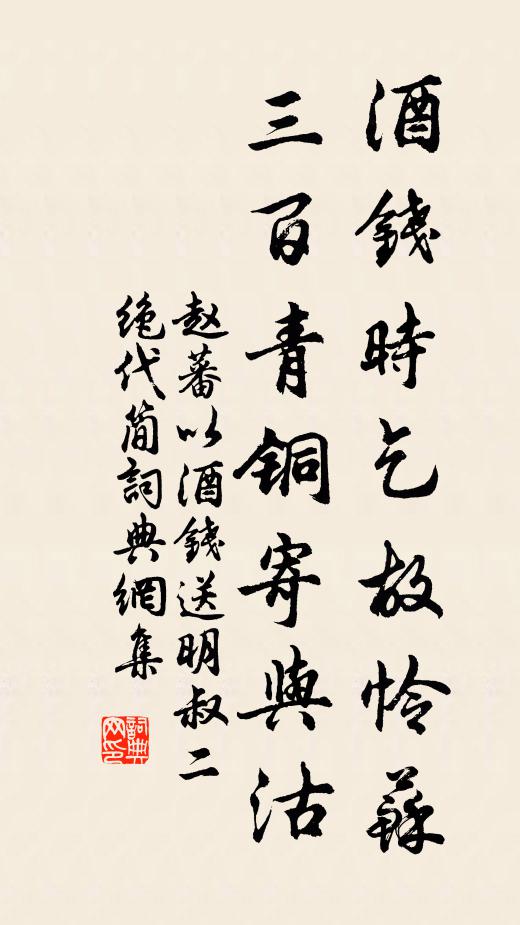 酒錢時乞故憐蘇
三百青銅寄與沽
赵蕃以酒錢送明叔二
绝代简詞典網集
詞典网印